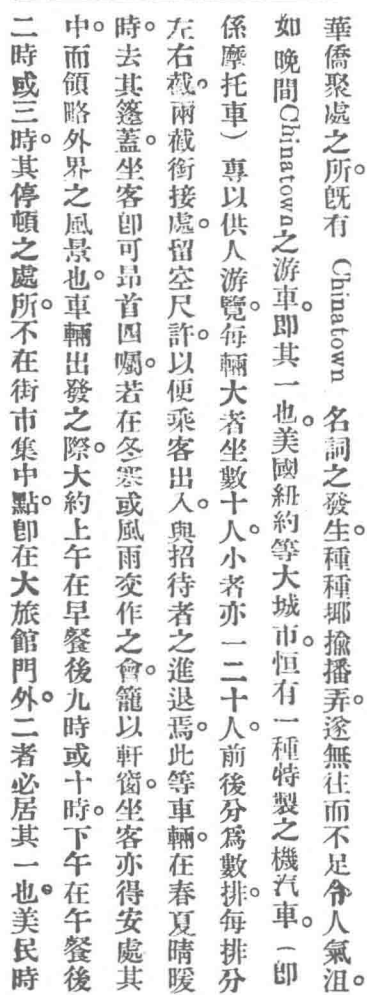 華僑聚處之所。旣有 Chinatown 名詞之發生。種種揶揄播弄。遂無往而不足令人氣沮。
如晚間Chinatown之游車。即其一也。美國紐約等大城市。恒有一種特製之機汽車。（卽
係摩托車）專以供人游覽。每輛大者坐數十人。小者亦一二十人。前後分爲數排。每排分
左右截。兩截銜接處。留空尺許。以便乘客出入。與招待者之進退焉。此等車輛。在春夏晴暖
時。去其篷蓋。坐客卽可昻首四矚。若在冬寒或風雨交作之會。籠以軒窗。坐客亦得安處其
中。而領略外界之風景也。車輛出發之際。大約上午在早餐後九時或十時。下午在午餐後
二時或三時。其停頓之處所。不在街市集中點。卽在大旅館門外。二者必居其一也。美民時